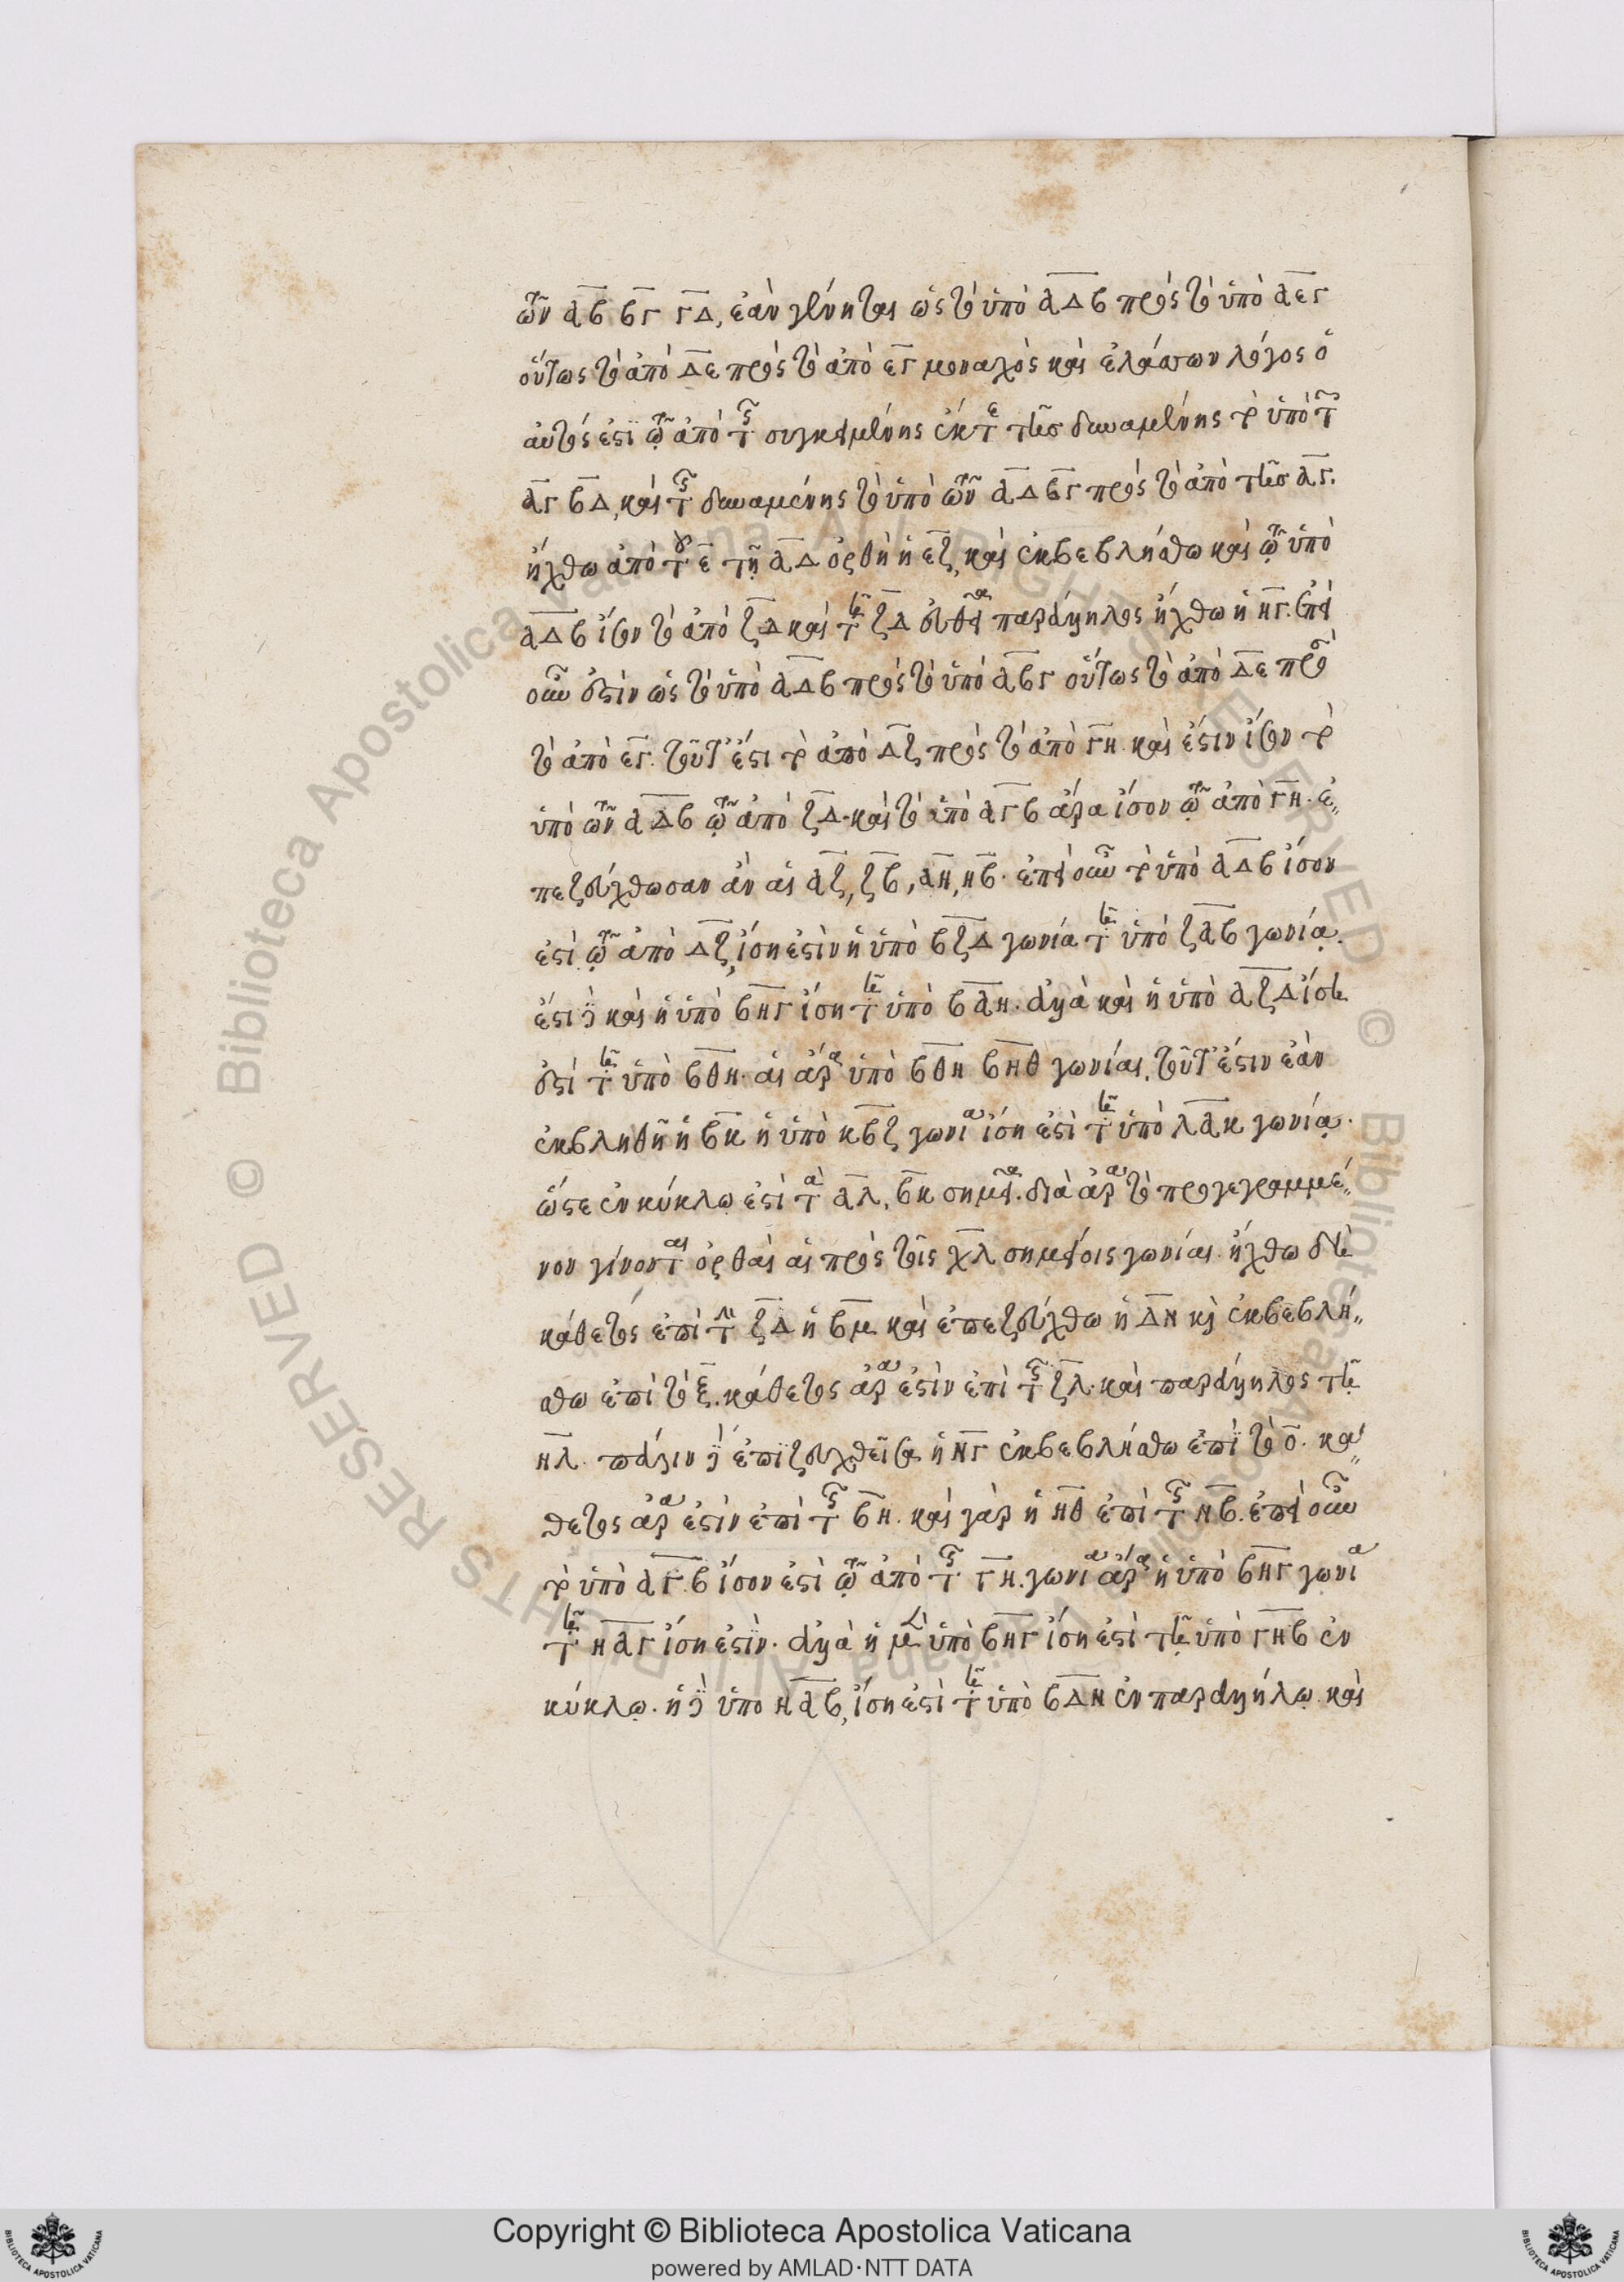 τῶν ΑΒ ΒΓ ΓΔ, ἐὰν γένηται ὡς τὸ ὑπὸ ΑΔΒ πρὸς τὸ ὑπὸ ΑΕΓ
οὕτως τὸ ἀπὸ ΔΕ πρὸς τὸ ἀπὸ ΕΓ μοναχὸς καὶ ἐλάσσων λόγος ὁ
αὐτός ἐστι τῷ ἀπὸ τῆς συγκειμένης ἔκ τε τῆς δυναμένης τὸ ὑπὸ τῶν
ΑΓ ΒΔ, καὶ τῆς δυναμένης τὸ ὑπὸ τῶν ΑΔ ΒΓ πρὸς τὸ ἀπὸ τῆς ΑΓ.
ἤχθω ἀπὸ τοῦ Ε τῇ ΑΔ ὀρθὴ ἡ ΕΖ, καὶ ἐκβεβλήσθω καὶ τῷ ὑπὸ
ΑΔΒ ἴσον τὸ ἀπὸ ΖΔ καὶ τῇ ΖΔ εὐθείᾳ παράλληλος ἤχθω ἡ ΗΓ. ἐπεὶ
οὖν ἐστὶν ὡς τὸ ὑπὸ ΑΔΒ πρὸς τὸ ὑπὸ ΑΒΓ οὕτως τὸ ἀπὸ ΔΕ πρὸς
τὸ ἀπὸ ΕΓ. τοῦτ' ἔστι τὸ ἀπὸ ΔΖ πρὸς τὸ ἀπὸ ΓΗ. καὶ ἔστιν ἴσον τὸ
ὑπὸ τῶν ΑΔΒ τῷ ἀπὸ ΖΔ. καὶ τὸ ὑπὸ ΑΓΒ ἄρα ἴσον τῷ ἀπὸ ΓΗ. ἐ„
πεζεύχθωσαν ἂν αἱ ΑΖ, ΖΒ, ΑΗ, ΗΒ. ἐπεὶ οὖν τὸ ὑπὸ ΑΔΒ ἴσον
ἐστὶ τῷ ἀπὸ ΔΖ, ἴση ἐστὶν ἡ ὑπὸ ΒΖΔ γωνία τῇ ὑπὸ ΖΑΒ γωνίᾳ.
ἔστι δὲ καὶ ἡ ὑπὸ ΒΗΓ ἴση τῇ ὑπὸ ΒΑΗ. ἀλλὰ καὶ ἡ ὑπὸ ΑΖΔ ἴση
ἐστὶ τῇ ὑπὸ ΒΘΗ. αἱ ἄρα ὑπὸ ΒΘΗ ΒΗΘ γωνίαι, τοῦτ' ἔστιν ἐὰν
ἐκβληθῇ ἡ ΒΚ ἡ ὑπὸ ΚΒΖ γωνία ἴση ἐστὶ τῇ ὑπὸ ΛΑΚ γωνίᾳ.
ὥστε ἐν κύκλῳ ἐστὶ τὰ ΑΛ, ΒΚ σημεῖα. διὰ ἄρα τὸ προγεγραμμέ„
νον γίνονται ὀρθαὶ αἱ πρὸς τοῖς ΧΛ σημείοις γωνίαι. ἤχθω δὴ
κάθετος ἐπὶ τὴν ΖΔ ἡ ΒΜ καὶ ἐπεζεύχθω ἡ ΔΝ καὶ ἐκβεβλή„
σθω ἐπὶ τὸ Ξ. κάθετος ἄρα ἐστὶν ἐπὶ τῆς ΖΛ. καὶ παράλληλος τῇ
ΗΛ. πάλιν δὲ ἐπιζευχθεῖσα ἡ ΝΓ ἐκβεβλήσθω ἐπὶ τὸ Ο. κά„
θετος ἄρα ἐστὶν ἐπὶ τῆς ΒΗ. καὶ γὰρ ἡ ΗΘ ἐπὶ τῆς ΝΒ. ἐπεὶ οὖν
τὸ ὑπὸ ΑΓΒ ἴσον ἐστὶ τῷ ἀπὸ τῆς ΓΗ. γωνία ἄρα ἡ ὑπὸ ΒΗΓ γωνίᾳ
τῇ ΗΑΓ ἴση ἐστίν. ἀλλὰ ἡ μὲν ὑπὸ ΒΗΓ ἴση ἐστὶ τῇ ὑπὸ ΓΗΒ ἐν
κύκλῳ. ἡ δὲ ὑπο ΗΑΒ, ἴση ἐστὶ τῇ ὑπὸ ΒΔΝ ἐν παραλλήλῳ. καὶ
© Biblioteca Apostolica Vaticana ALL RIGHTS RESERVED
Copyright © Biblioteca Apostolica Vaticana
powered by AMLAD·NTT DATA